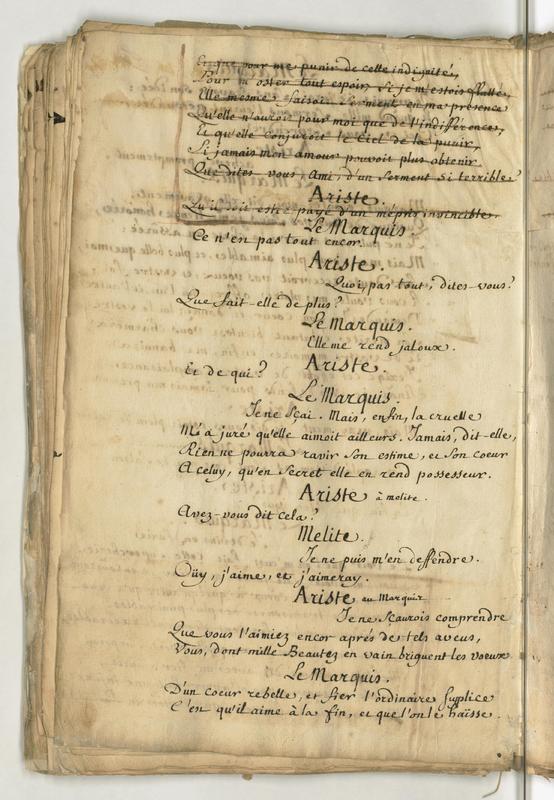 Et que pour me punir de cette indignité,
Pour m'oster tout espoir, si je m'estois flatté,
Elle mesme faisoit serment en ma presence
Qu'elle n'auroit pour moi que de l'indifference,
Et qu'elle conjuroit le Ciel de la punir,
Si jamais mon amour pouvoit plus obtenir.
Que dites vous, Ami, d'un serment si terrible
Ariste.
Qu'il soit estre payé d'un mépris invincible.
Le Marquis.
Ce n'en pas tout encor.
Ariste.
Quoi, pas tout, dites-vous?
Que fait-elle de plus?
Le Marquis.
Elle me rend jaloux.
Ariste.
Et de qui?
Le Marquis.
Je ne sçai. Mais, enfin, la cruelle
M'a juré qu'elle aimoit ailleurs. Jamais, dit-elle,
Rien ne pourra ravir son estime, et son coeur
A celuy, qu'en secret elle en rend possesseur.
Ariste à melite.
Avez-vous dit cela?
Melite.
Je ne puis m'en deffendre.
Oüy, j'aime, et j'aimeray.
Ariste au Marquis
Je ne sçaurois comprendre
Que vous l'aimiez encor aprés de tels aveus,
Vous, dont mille Beautez en vain briguent les voeux
Le Marquis.
D'un coeur rebelle, et fier l'ordinaire supplice
C'en qu'il aime à la fin, et que l'on le haïsse.